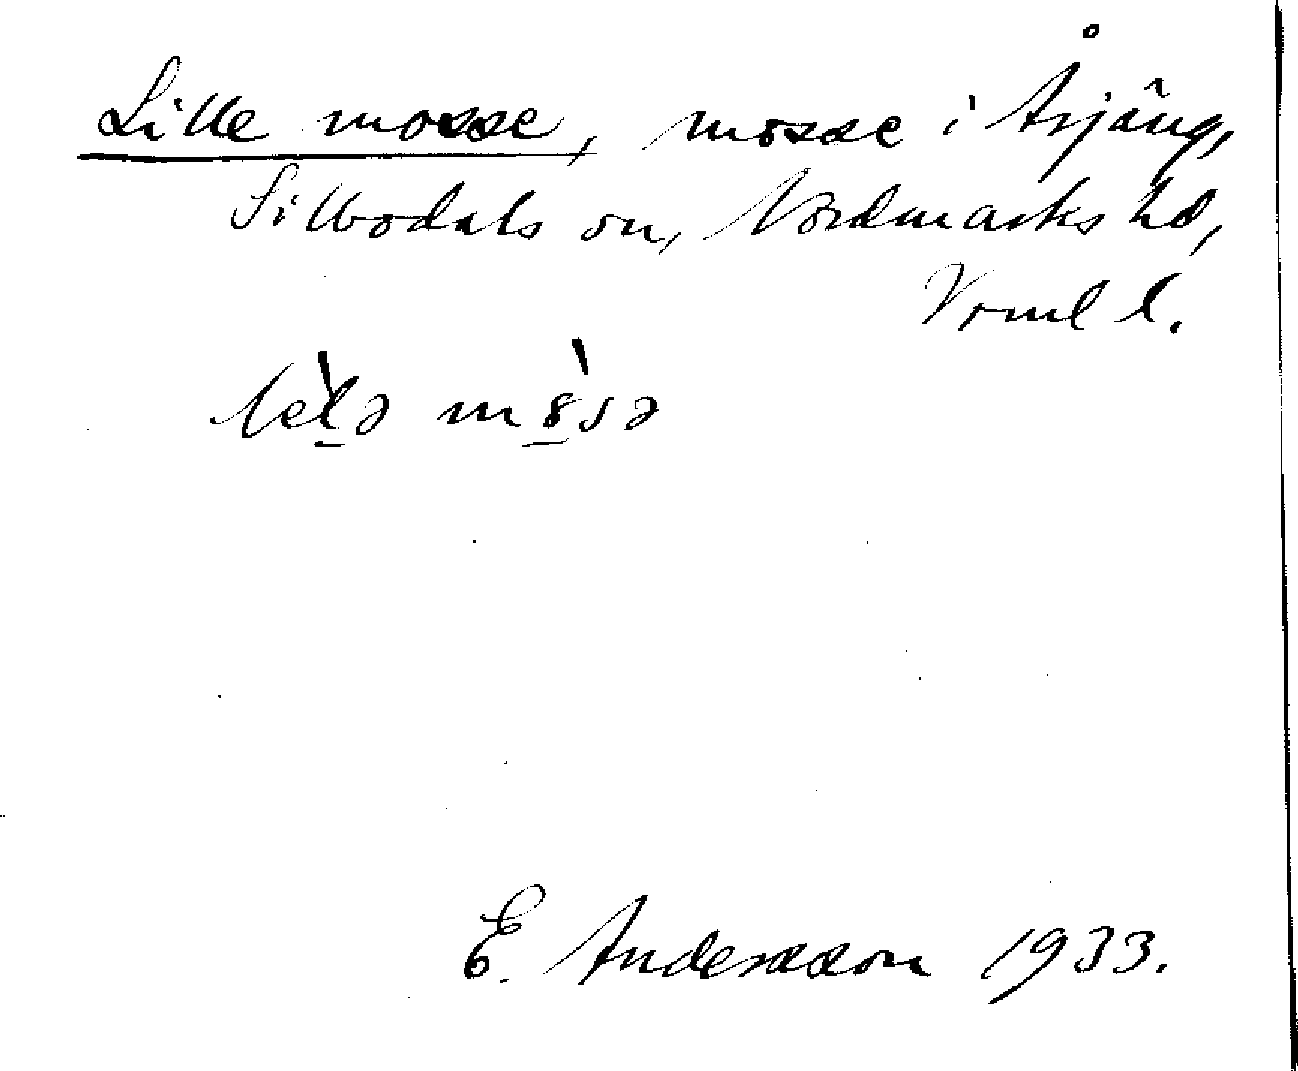 Lille mosse, mosse i Årjäng,
Silbodals sn, Nordmarks hd,
Vrml l.
E. Andersson 1933.